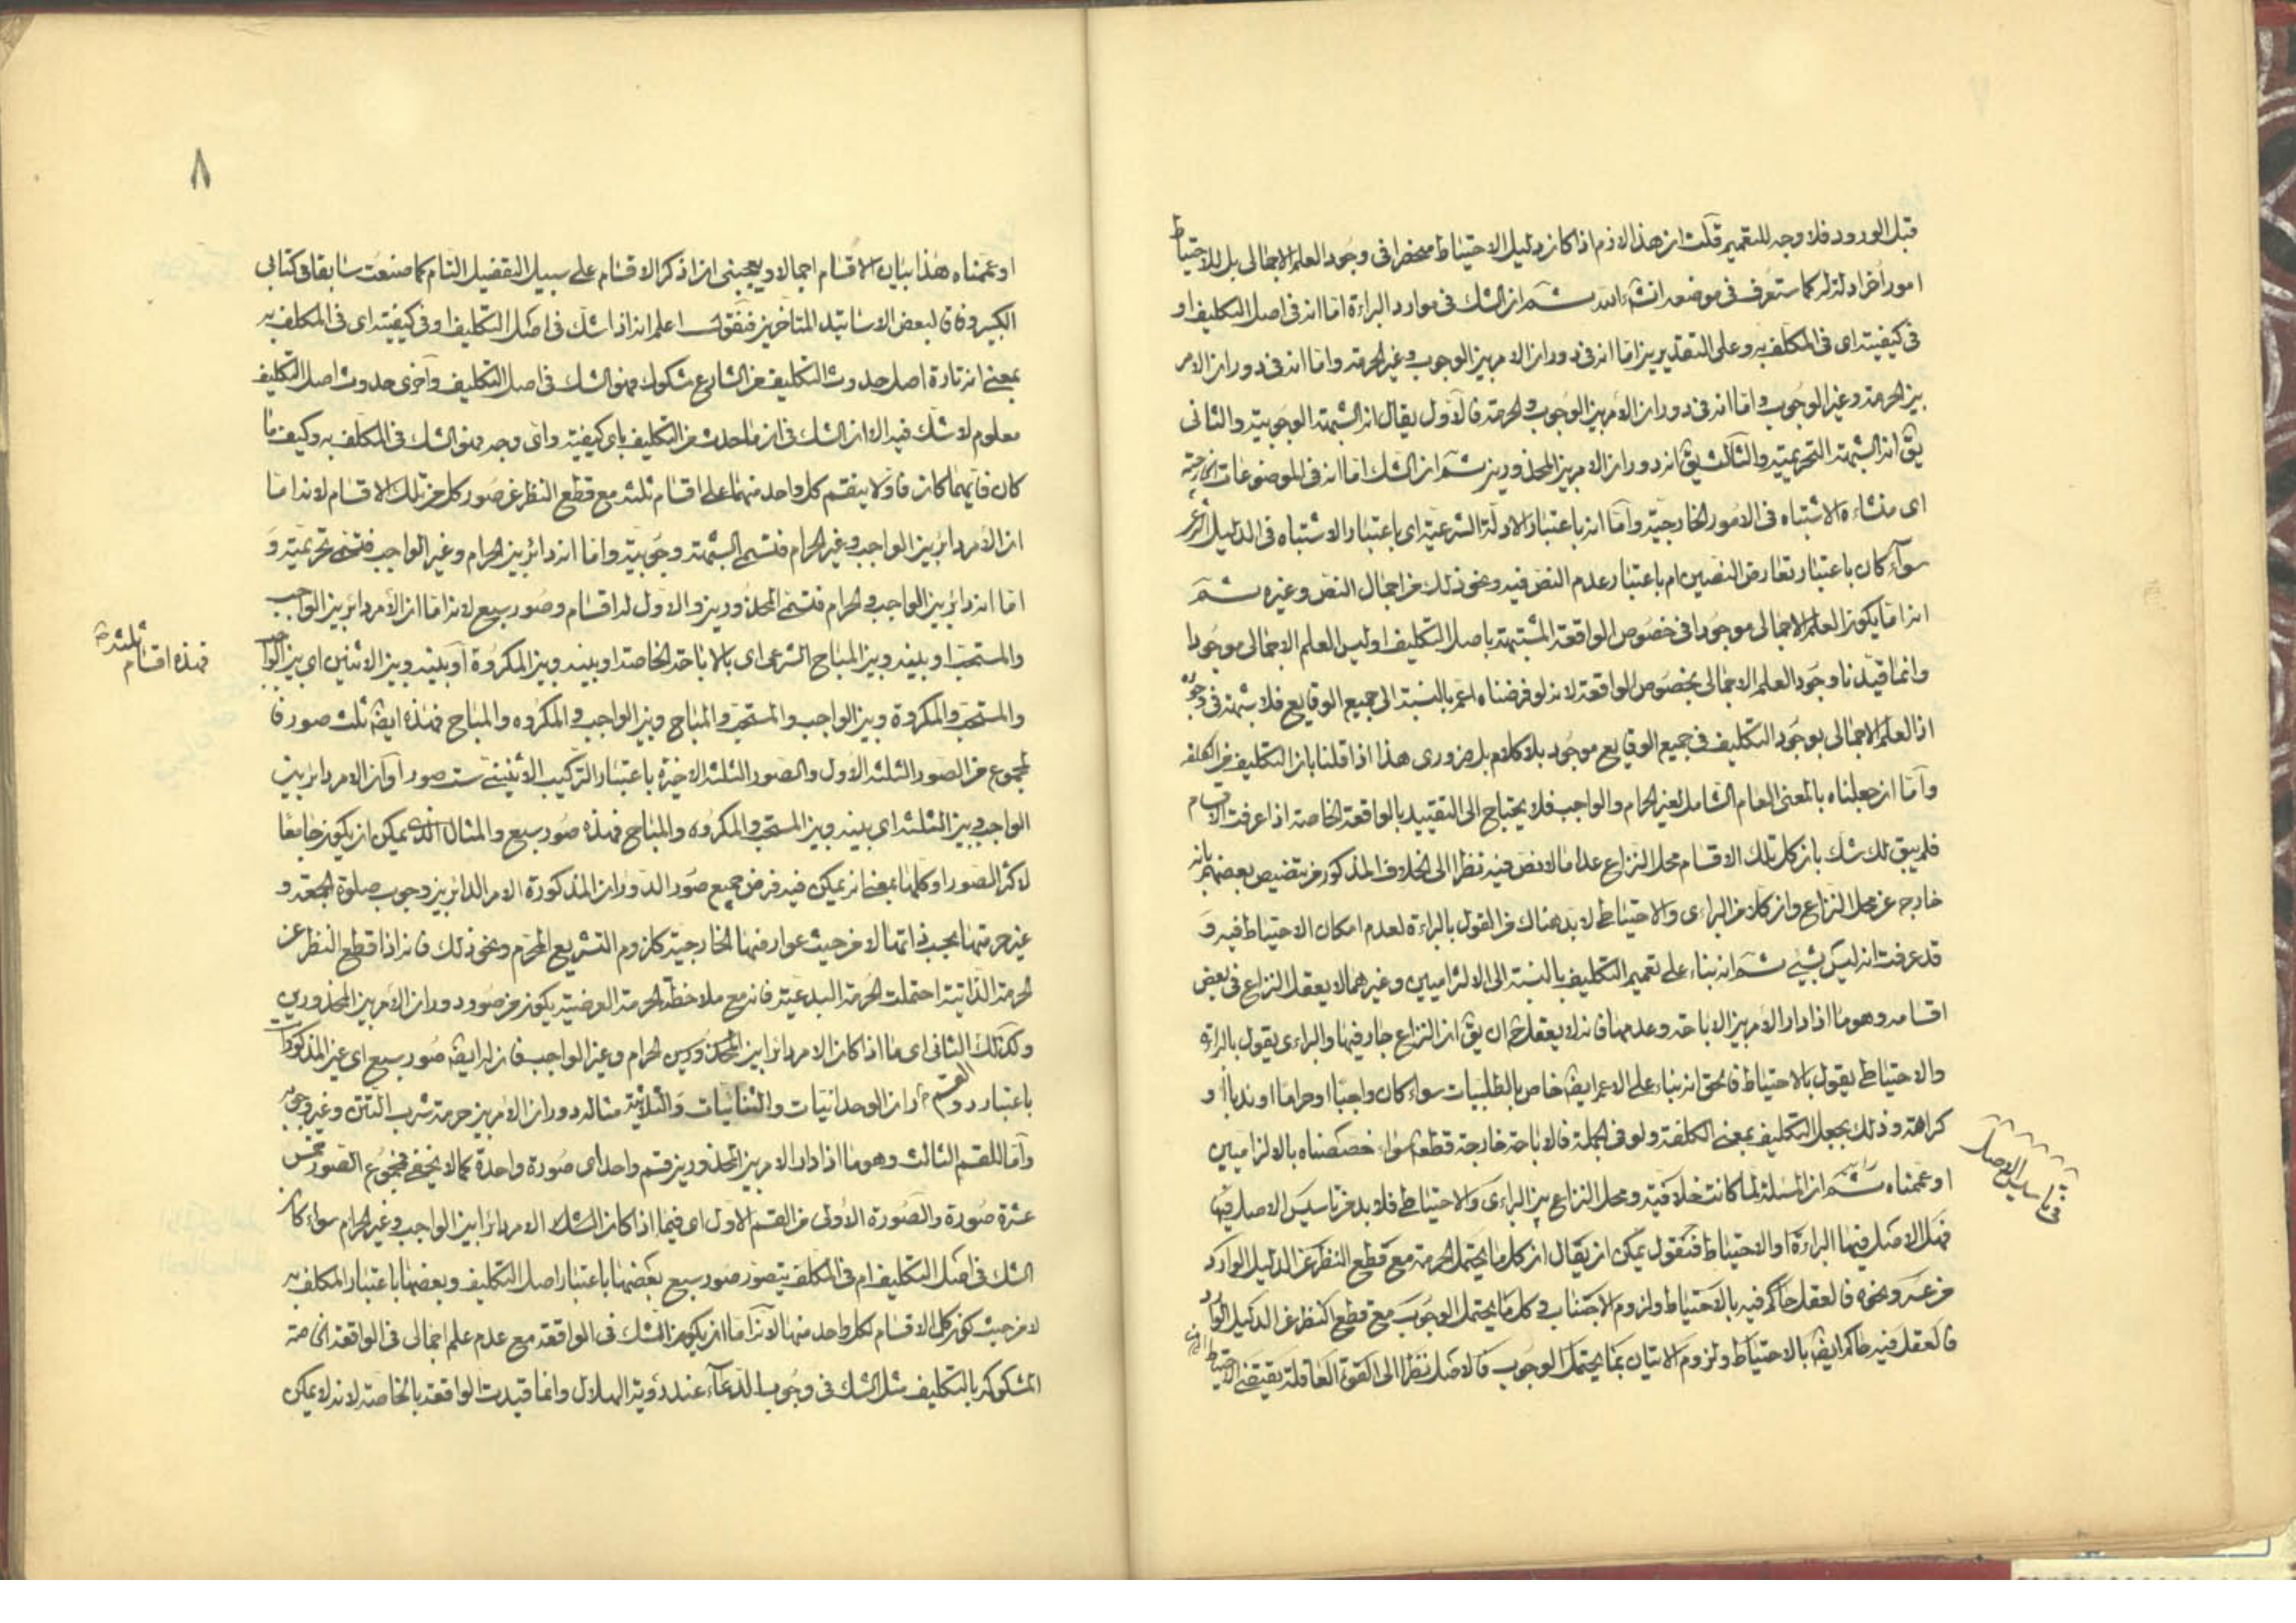 قبل الورود فلا وجه للتعميم قلت ان هذا لازم اذا كان دليل الاحتياط منحصرا فى وجود العلم الاجمالى بل للاحتياط
امور اخر ادلة له كما ستعرف فى موضعه انشاء الله ثم ان الشك فى موارد البراءة اما انه فى اصل التكليف او
فى كيفيته اى فى المكلف به وعلى التقديرين اما انه فى دوران الامر بين الوجوب وغير الحرمة واما انه فى دوران الامر
بين الحرمة وغير الوجوب واما انه فى دوران الامر بين الوجوب والحرمة فالاول يقال انه الشبهة الوجوبية والثانى
يق انه الشبهة التحريمية والثالث يق انه دوران الامر بين المحذورين ثم ان الشك اما انه فى الموضوعات الخارجية
اى منشاء الاشتباه فى الامور الخارجية واما انه باعتبار الادلة الشرعية اى باعتبار الاشتباه فى الدليل الشرعى
سواء كان باعتبار تعارض النصين ام باعتبار عدم النص فيه ونحو ذلك من اجمال النص وغيره ثم
انه اما يكون العلم الاجمالى موجودا فى خصوص الواقعة المشتبهة باصل التكليف او ليس العلم الاجمالى موجودا
وانما قيدنا وجود العلم الاجمالى بخصوص الواقعة لانه لو فرضناه اعم بالنسبة الى جميع الوقايع فلا شبهة فى وجوده
اذ العلم الاجمالى بوجود التكليف فى جميع الوقايع موجود بلا كلام بل ضرورى هذا اذا قلنا بان التكليف من الكلفه
واما ان جعلناه بالمعنى العام الشامل لغير الحرام والواجب فلا يحتاج الى التقييد بالواقعة الخاصة اذا عرفت الاقسام
فلم يبق لك شك بان كل تلك الاقسام محل النزاع عدا ما لا نص فيه نظرا الى الخلاف المذكور من تنصيص بعضهم بانه
خارجه عن محل النزاع وان كلا من البراءى والاحتياطى لابد هناك من القول بالبراءة لعدم امكان الاحتياط فيه و
قد عرفت انه ليس بشيئ ثم انه بناء على تعميم التكليف بالنسبة الى الالزاميين وغيرهما لا يعقل النزاع فى بعض
اقسامه وهو ما اذا دار الامر بين الاباحة وعدمها فانه لا يعقل ح ان يق ان النزاع جار فيها والبراءى يقول بالبراءة
والاحتياطى يقول بالاحتياط فالحق انه بناء على الاعم ايضا خاص بالطلبيات سواء كان واجبا او حراما او ندبا او
كراهة وذلك بجعل التكليف بمعنى الكلفة ولو فى الجملة فالاباحة خارجة قطعا سواء خصصناه بالالزاميين
او عممناه ثم ان المسئلة لما كانت خلافية ومحل النزاع بين البراءى والاحتياطى فلابد من تاسيس الاصل فيها
فى تاسيس الاصل
فهل الاصل فيها البراءة او الاحتياط فنقول يمكن ان يقال ان كل ما يحتمل الحرمة مع قطع النظر عن الدليل الوارد
من عسر ونحوه فالعقل حاكم فيه بالاحتياط ولزوم الاجتناب وكل ما يحتمل الوجوب مع قطع النظر عن الدليل الوارد
فالعقل فيه حاكم ايضا بالاحتياط ولزوم الاتيان بما يحتمل الوجوب فالاصل نظرا الى القوة العاقلة يقتضى الاحتياط
٨
او عممناه هذا بيان الاقسام اجمالا ويعجبنى ان اذكر الاقسام على سبيل التفصيل التام كما صنعت سابقا فى كتابى
الكبير وفاقا لبعض الاساتيد المتاخرين فنقول اعلم انه اذا شك فى اصل التكليف او فى كيفيته اى فى المكلف به
بمعنى انه تارة اصل حدوث التكليف من الشارع مشكوك فهو الشك فى اصل التكليف واخرى حدوث اصل التكليف
معلوم لا شك فيه الا ان الشك فى ان ما حدث من التكليف باى كيفية واى وجه فهو الشك فى المكلف به وكيف ما
كان فايهما كان فاولا ينقسم كل واحد منهما على اقسام ثلثة مع قطع النظر عن صور كل من تلك الاقسام لانه اما
ان الامر دائر بين الواجب وغير الحرام فتسمى الشبهة وجوبية واما انه دائر بين الحرام وغير الواجب فتسمى تحريمية و
اما انه دائر بين الواجب والحرام فتسمى المحذورين والاول له اقسام وصور سبع لانه اما ان الامر دائر بين الواجب
والمستحب او بينه وبين المباح الشرعى اى بالاباحة الخاصة او بينه وبين المكروه او بينه وبين الاثنين اى بين الواجب
فهذه اقسام ثلثة
والمستحب والمكروه وبين الواجب والمستحب والمباح وبين الواجب والمكروه والمباح فهذه ايضا ثلث صور فا
لمجموع من الصور الثلثة الاول والصور الثلثة الاخيرة باعتبار التركيب الاثنينى ست صور او ان الامر دائر بين
الواجب وبين الثلثة اى بينه وبين المستحب والمكروه والمباح فهذه صور سبع والمثال الذى يمكن ان يكون جامعا
لاكثر الصور او كلها بمعنى انه يمكن فيه فرض جميع صور الدوران المذكورة الامر الدائر بين وجوب صلوة الجمعة و
غير حرمتها بحسب ذاتها لا من حيث عوارضها الخارجية كلزوم التشريع المحرم ونحو ذلك فانه اذا قطع النظر عن
الحرمة الذاتية احتملت الحرمة البدعية فانه مع ملاحظة الحرمة العرضية يكون من صور دوران الامر بين المحذورين
وكذلك الثانى اى ما اذا كان الامر دائرا بين الحرام وغير الواجب فان له ايضا صور سبع اى غير المذكورات
باعتبار دوران الوحدانيات والثنائيات والثلاثية مثاله دوران الامر بين حرمة شرب التتن وغير وجوبه
واما للقسم الثالث وهو ما اذا دار الامر بين المحذورين قسم واحد اى صورة واحدة كما لا يخفى فمجموع الصور خمس
عشرة صورة والصورة الاولى من القسم الاول اى فيما اذا كان الشك الامر دائرا بين الواجب وغير الحرام سواء كان
الشك فى اصل التكليف ام فى المكلف يتصور صور سبع بعضها باعتبار اصل التكليف وبعضها باعتبار المكلف به
لا من حيث كون كل الاقسام لكل واحد منها لانه اما ان يكون الشك فى الواقعة مع عدم علم اجمالى فى الواقعة الخاصة
المشكوكة بالتكليف مثل الشك فى وجوب الدعاء عند رؤية الهلال وانما قيدت الواقعة بالخاصة لانه لا يمكن